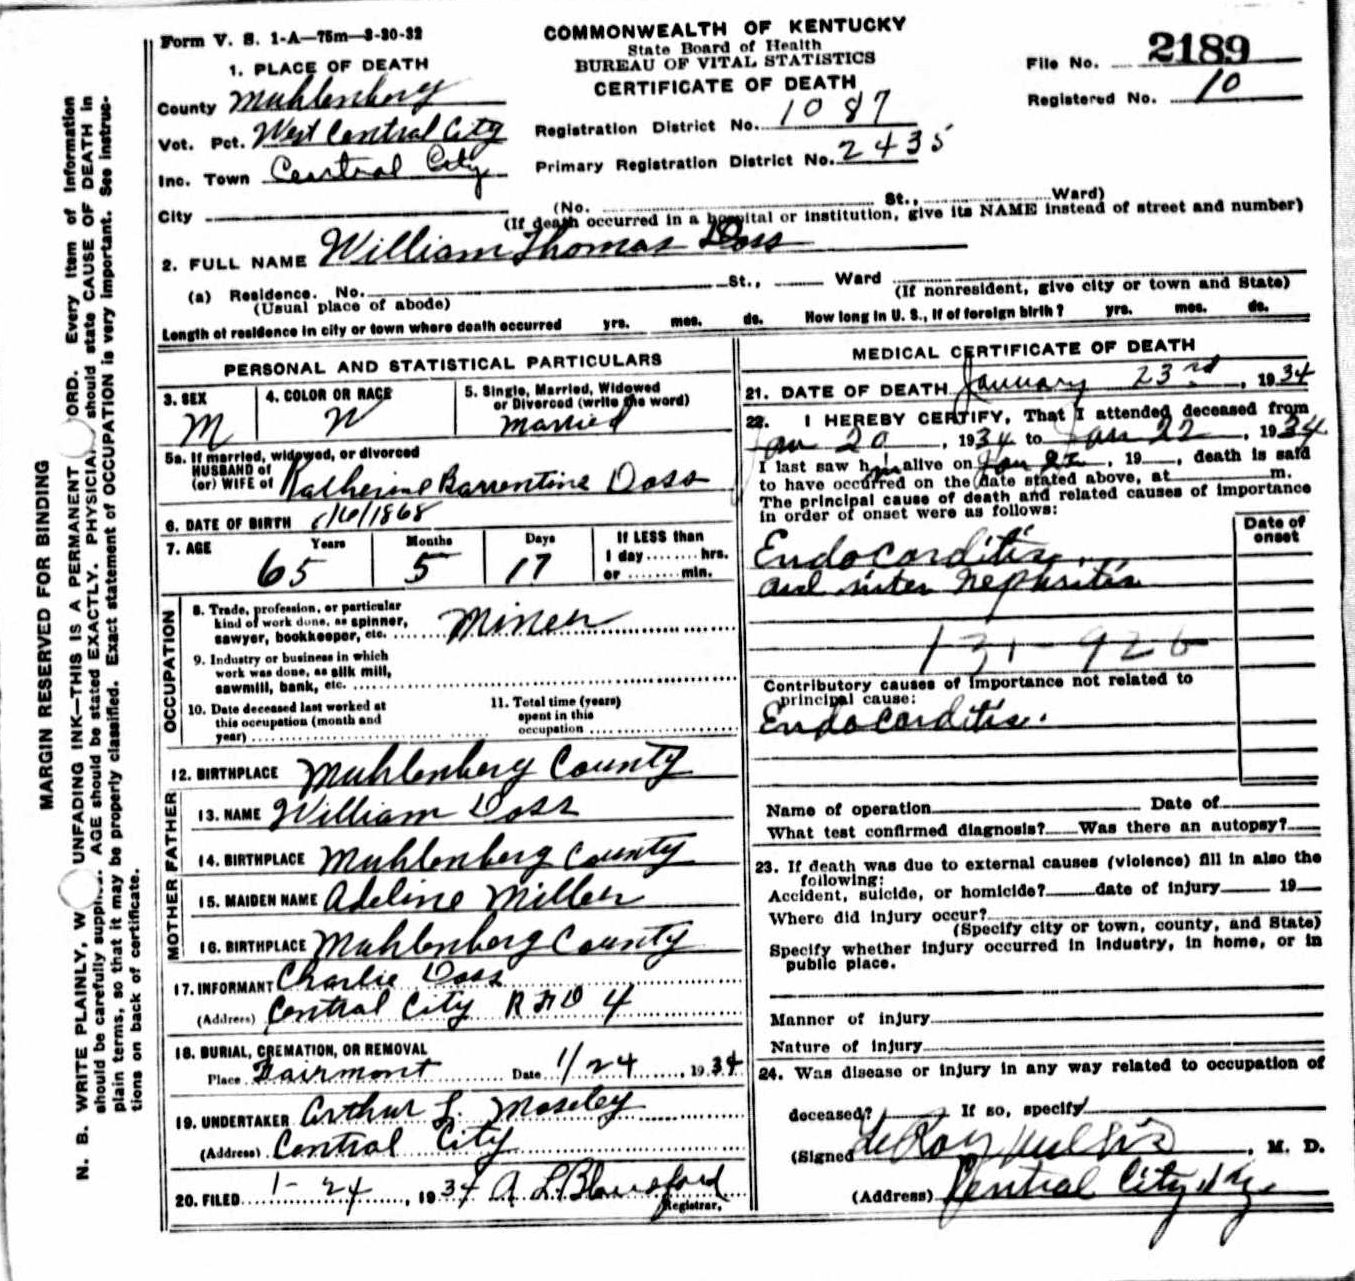 Form V. S. 1-A—75m—3-30-32
COMMONWEALTH OF KENTUCKY
State Board of Health
BUREAU OF VITAL STATISTICS
CERTIFICATE OF DEATH
File No. 2189
Registered No. 10
1. PLACE OF DEATH
County Muhlenberg
Vot. Pct. West Central City
Inc. Town Central City
Registration District No. 1087
Primary Registration District No. 2435
City (No. St., Ward)
(If death occurred in a hospital or institution, give its NAME instead of street and number)
2. FULL NAME William Thomas Doss
(a) Residence. No. St., Ward
(Usual place of abode) (If nonresident, give city or town and State)
Length of residence in city or town where death occurred yrs. mos. ds. How long in U. S., if of foreign birth? yrs. mos. ds.
PERSONAL AND STATISTICAL PARTICULARS
3. SEX M
4. COLOR OR RACE W
5. Single, Married, Widowed
or Divorced (write the word)
Married
5a. If married, widowed, or divorced
HUSBAND of
(or) WIFE of Katherine Barrentine Doss
6. DATE OF BIRTH /6/1868
7. AGE Years 65 Months 5 Days 17 If LESS than
1 day hrs.
or min.
OCCUPATION
8. Trade, profession, or particular
kind of work done, as spinner,
sawyer, bookkeeper, etc. Miner
9. Industry or business in which
work was done, as silk mill,
sawmill, bank, etc.
10. Date deceased last worked at
this occupation (month and
year)
11. Total time (years)
spent in this
occupation
12. BIRTHPLACE Muhlenberg County
FATHER
13. NAME William Doss
14. BIRTHPLACE Muhlenberg County
MOTHER
15. MAIDEN NAME Adeline Miller
16. BIRTHPLACE Muhlenberg County
17. INFORMANT Charlie Doss
(Address) Central City R F D 4
18. BURIAL, CREMATION, OR REMOVAL
Place Fairmont Date 1/24, 1934
19. UNDERTAKER Arthur L. Moseley
(Address) Central City
20. FILED 1-24, 1934 A L Blandford
Registrar.
MEDICAL CERTIFICATE OF DEATH
21. DATE OF DEATH January 23rd, 1934
22. I HEREBY CERTIFY, That I attended deceased from
Jan 20, 1934 to Jan 22, 1934
I last saw him alive on Jan 22, 19, death is said
to have occurred on the date stated above, at m.
The principal cause of death and related causes of importance
in order of onset were as follows:
Date of
onset
Endocarditis
and inter Nephritis
131-926
Contributory causes of importance not related to
principal cause:
Endocarditis.
Name of operation Date of
What test confirmed diagnosis? Was there an autopsy?
23. If death was due to external causes (violence) fill in also the
following:
Accident, suicide, or homicide? date of injury 19
Where did injury occur?
(Specify city or town, county, and State)
Specify whether injury occurred in industry, in home, or in
public place.
Manner of injury
Nature of injury
24. Was disease or injury in any way related to occupation of
deceased? If so, specify
(Signed , M. D.
(Address) Central City, Ky.
MARGIN RESERVED FOR BINDING
N. B. WRITE PLAINLY, W UNFADING INK—THIS IS A PERMANENT ORD. Every item of information
should be carefully supplied. AGE should be stated EXACTLY. PHYSICIA should state CAUSE OF DEATH in
plain terms, so that it may be properly classified. Exact statement of OCCUPATION is very important. See instruc-
tions on back of certificate.